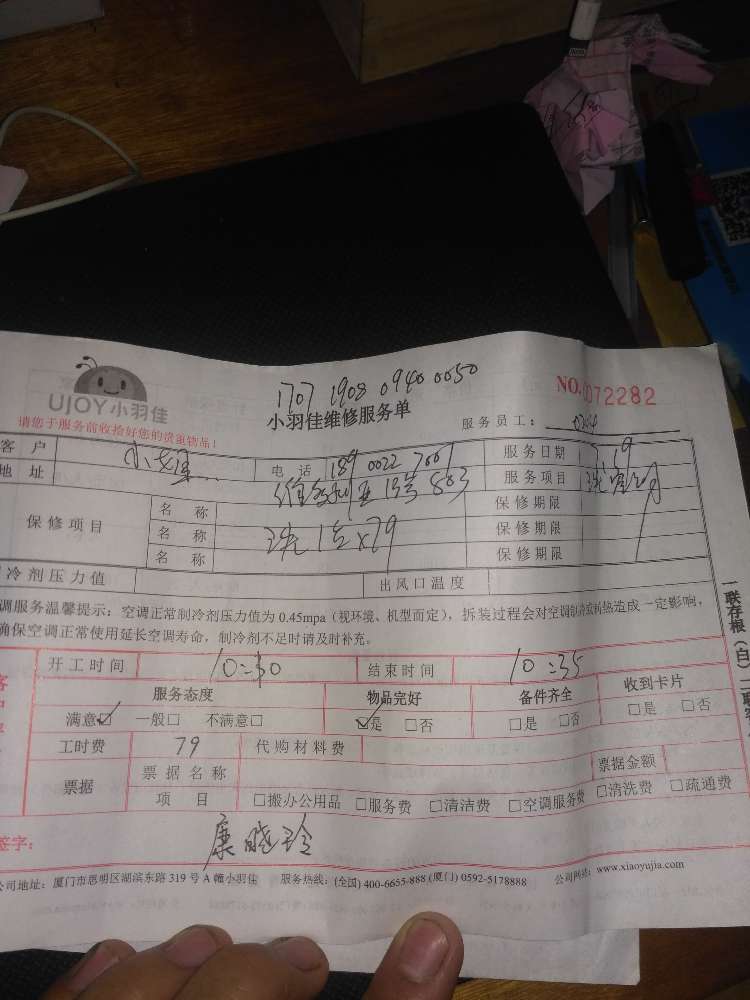 1707 1908 0940 0050
UJOY小羽佳
小羽佳维修服务单
NO.0072282
请您于服务前收拾好您的贵重物品！
服务员工：
客 户
电 话 189 0022 7001
服务日期 7.19
地 址
15号 803
服务项目
保修项目
名 称
保修期限
名 称
洗1台x79
保修期限
名 称
保修期限
冷剂压力值
出风口温度
调服务温馨提示：空调正常制冷剂压力值为 0.45mpa（视环境、机型而定），拆装过程会对空调制冷或制热造成一定影响，
确保空调正常使用延长空调寿命，制冷剂不足时请及时补充。
一联存根（白）二联客
开工时间 10:30 结束时间 10:35
服务态度 物品完好 备件齐全 收到卡片
满意☑ 一般□ 不满意□ ☑是 □否 □是 □否 □是 □否
工时费 79 代购材料费
票据 票据名称 票据金额
项 目 □搬办公用品 □服务费 □清洁费 □空调服务费 □清洗费 □疏通费
签字：
廉晓玲
公司地址：厦门市思明区湖滨东路 319 号 A 幢小羽佳 服务热线：(全国) 400-6655-888 (厦门) 0592-5178888 公司网站：www.xiaoyujia.com